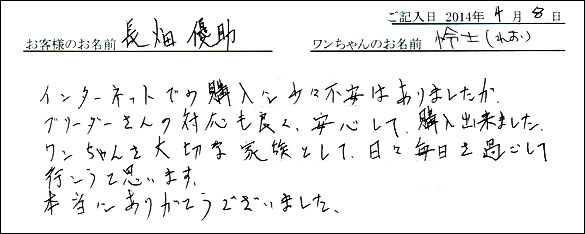 ご記入日 2014年 4月 8日
お客様のお名前 長畑 優助 ワンちゃんのお名前 怜士(れお)
インターネットでの購入に少々不安はありましたが、
ブリーダーさんの対応も良く、安心して、購入出来ました。
ワンちゃんを大切な家族として、日々毎日を過ごして
行こうと思います。
本当にありがとうございました。